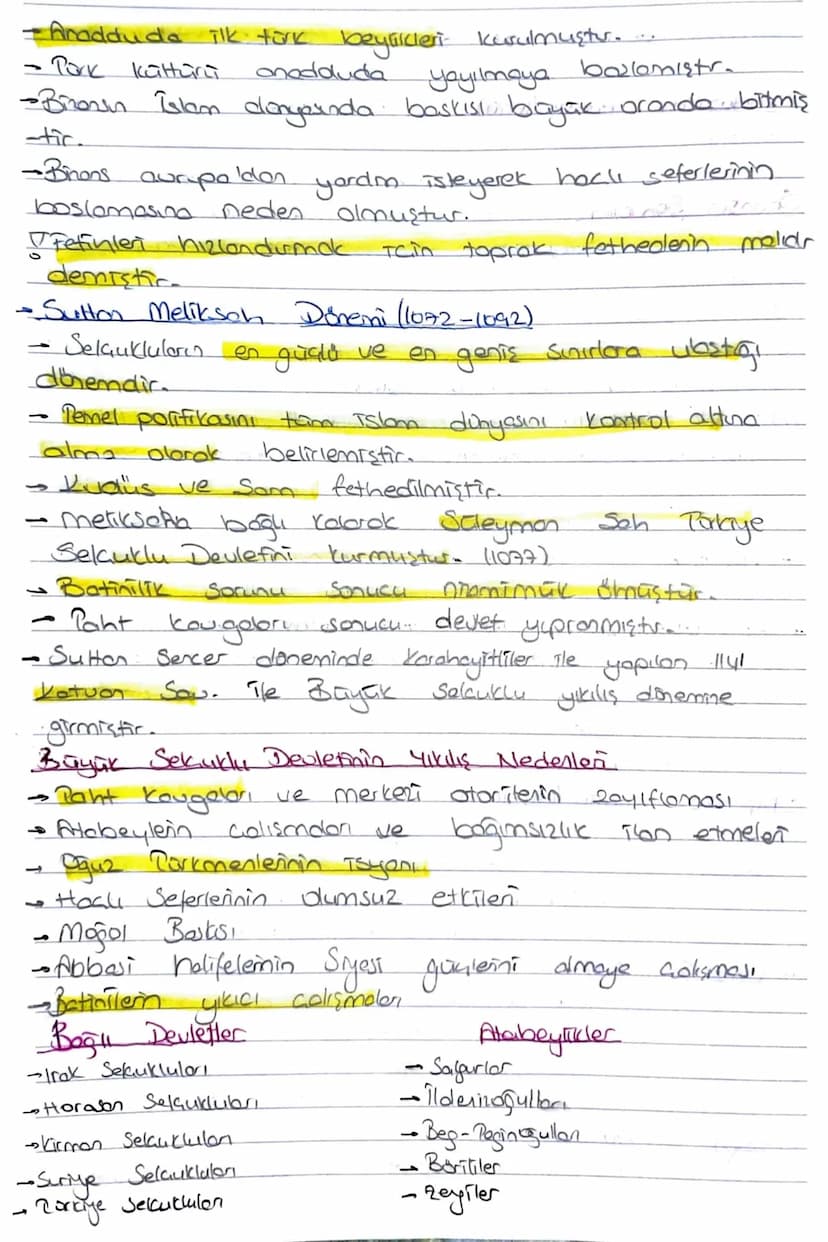 → Anadduda ilk türk beylikleri kurulmuştur. ..
→ Türk kültürü anadduda yayılmaya başlamıştr.
→ Bizansın İslam dünyasında baskısı büyük oranda bitmiş
-tir.
→ Bizans avrupa'dan yardım isteyerek haçlı seferlerinin
başlamasına neden olmuştur.
! Fetihleri hızlandırmak için toprak fethedenin malıdr
demiştir.
→ Sultan Melikşah Dönemi (1072-1092)
→ Selçukluların en güçlü ve en geniş sınırlara ulaştığı
dönemdir.
→ Temel politikasını tüm islam dünyasını kontrol altına
alma olarak belirlemiştir.
→ Kudüs ve Şam fethedilmiştir.
→ Melikşaha bağlı kalarak Süleyman Şah Türkiye
Selçuklu Devletini kurmuştur. (1077)
→ Batinilik sorunu sonucu nizamimülk ölmüştür.
→ Taht kavgaları sonucu devlet yıpranmıştr.
→ Sultan Sencer döneminde Karahayitliler ile yapılan 1141
Katvan Sav. ile Büyük Selçuklu yıkılış dönemine
girmiştir.
Büyük Selçuklu Devletinin Yıkılış Nedenleri
→ Taht kavgaları ve merkezi otoritenin zayıflaması
→ Atabeylerin çalışmaları ve bağımsızlık ilan etmeleri
→ Oğuz Türkmenlerinin isyanı
→ Haçlı Seferlerinin olumsuz etkileri
→ Moğol Baskısı
→ Abbasi halifelerinin Siyasi güçlerini almaya çalışması
→ Batinilerin yıkıcı çalışmaları
Bağlı Devletler Atabeylikler
→ Irak Selçukluları → Salgurlar
→ Horasan Selçukluları → İldenizoğulları
→ Kirman Selçukluları → Beg-Teginoğulları
→ Suriye Selçukluları → Böritiler
→ Türkiye Selçukluları → Zengiler